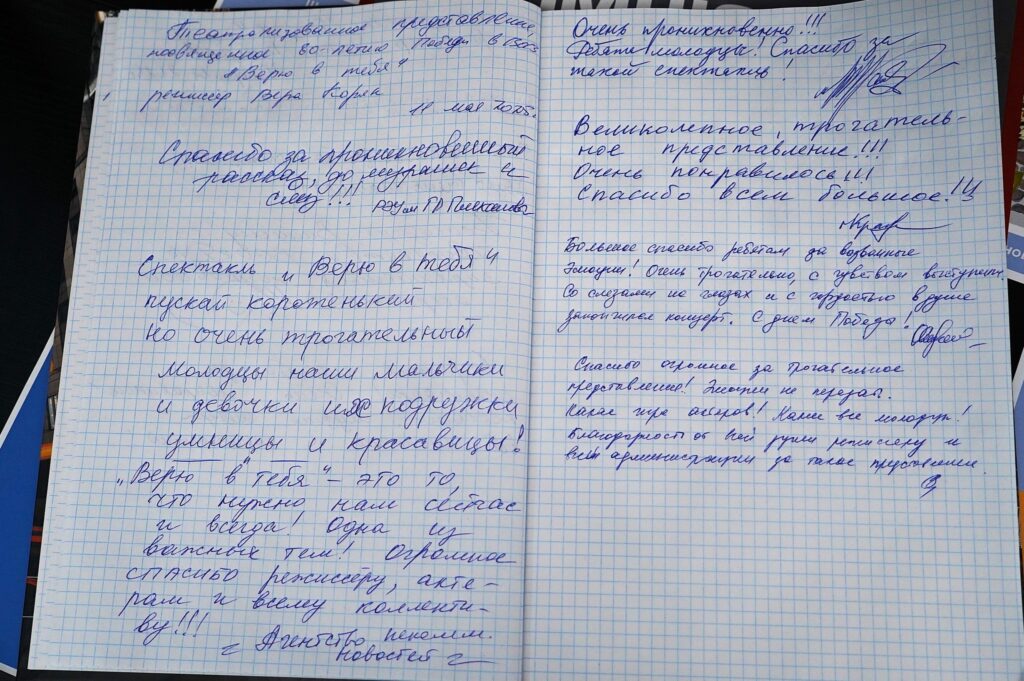 Театрализованное представление,
посвященное 80-летию Победы в ВОВ
"Верю в тебя"
режиссер Вера Корян
11 мая 2025г.
Спасибо за проникновенный
рассказ, до мурашек и
слез!!! РЭУ им Г.В. Плеханова
Спектакль "Верю в тебя"
пускай короженький
но очень трогательный
молодцы наши мальчики
и девочки их подружки
умницы и красавицы!
"Верю в тебя" - это то,
что нужно нам сейчас
и всегда! Одна из
важных тем! Огромное
спасибо режиссёру, акте-
рам и всему коллекти-
ву!!!
Агентство некомм.
новостей
Очень проникновенно!!!
Ребята молодцы! Спасибо за
такой спектакль!
Великолепное, трогатель-
ное представление!!!
Очень понравилось!!!
Спасибо всем большое!!!
Большое спасибо ребятам за
эмоции! Очень трогательно, с чувством выступили
Со слезами на глазах и с гордостью в душе
закончился концерт. С днем Победы!
Спасибо огромное за трогательное
представление! Эмоции не передать.
Какая игра актеров! Какие все молодцы!
Благодарность от всей души режиссеру и
всей администрации за такое представление.